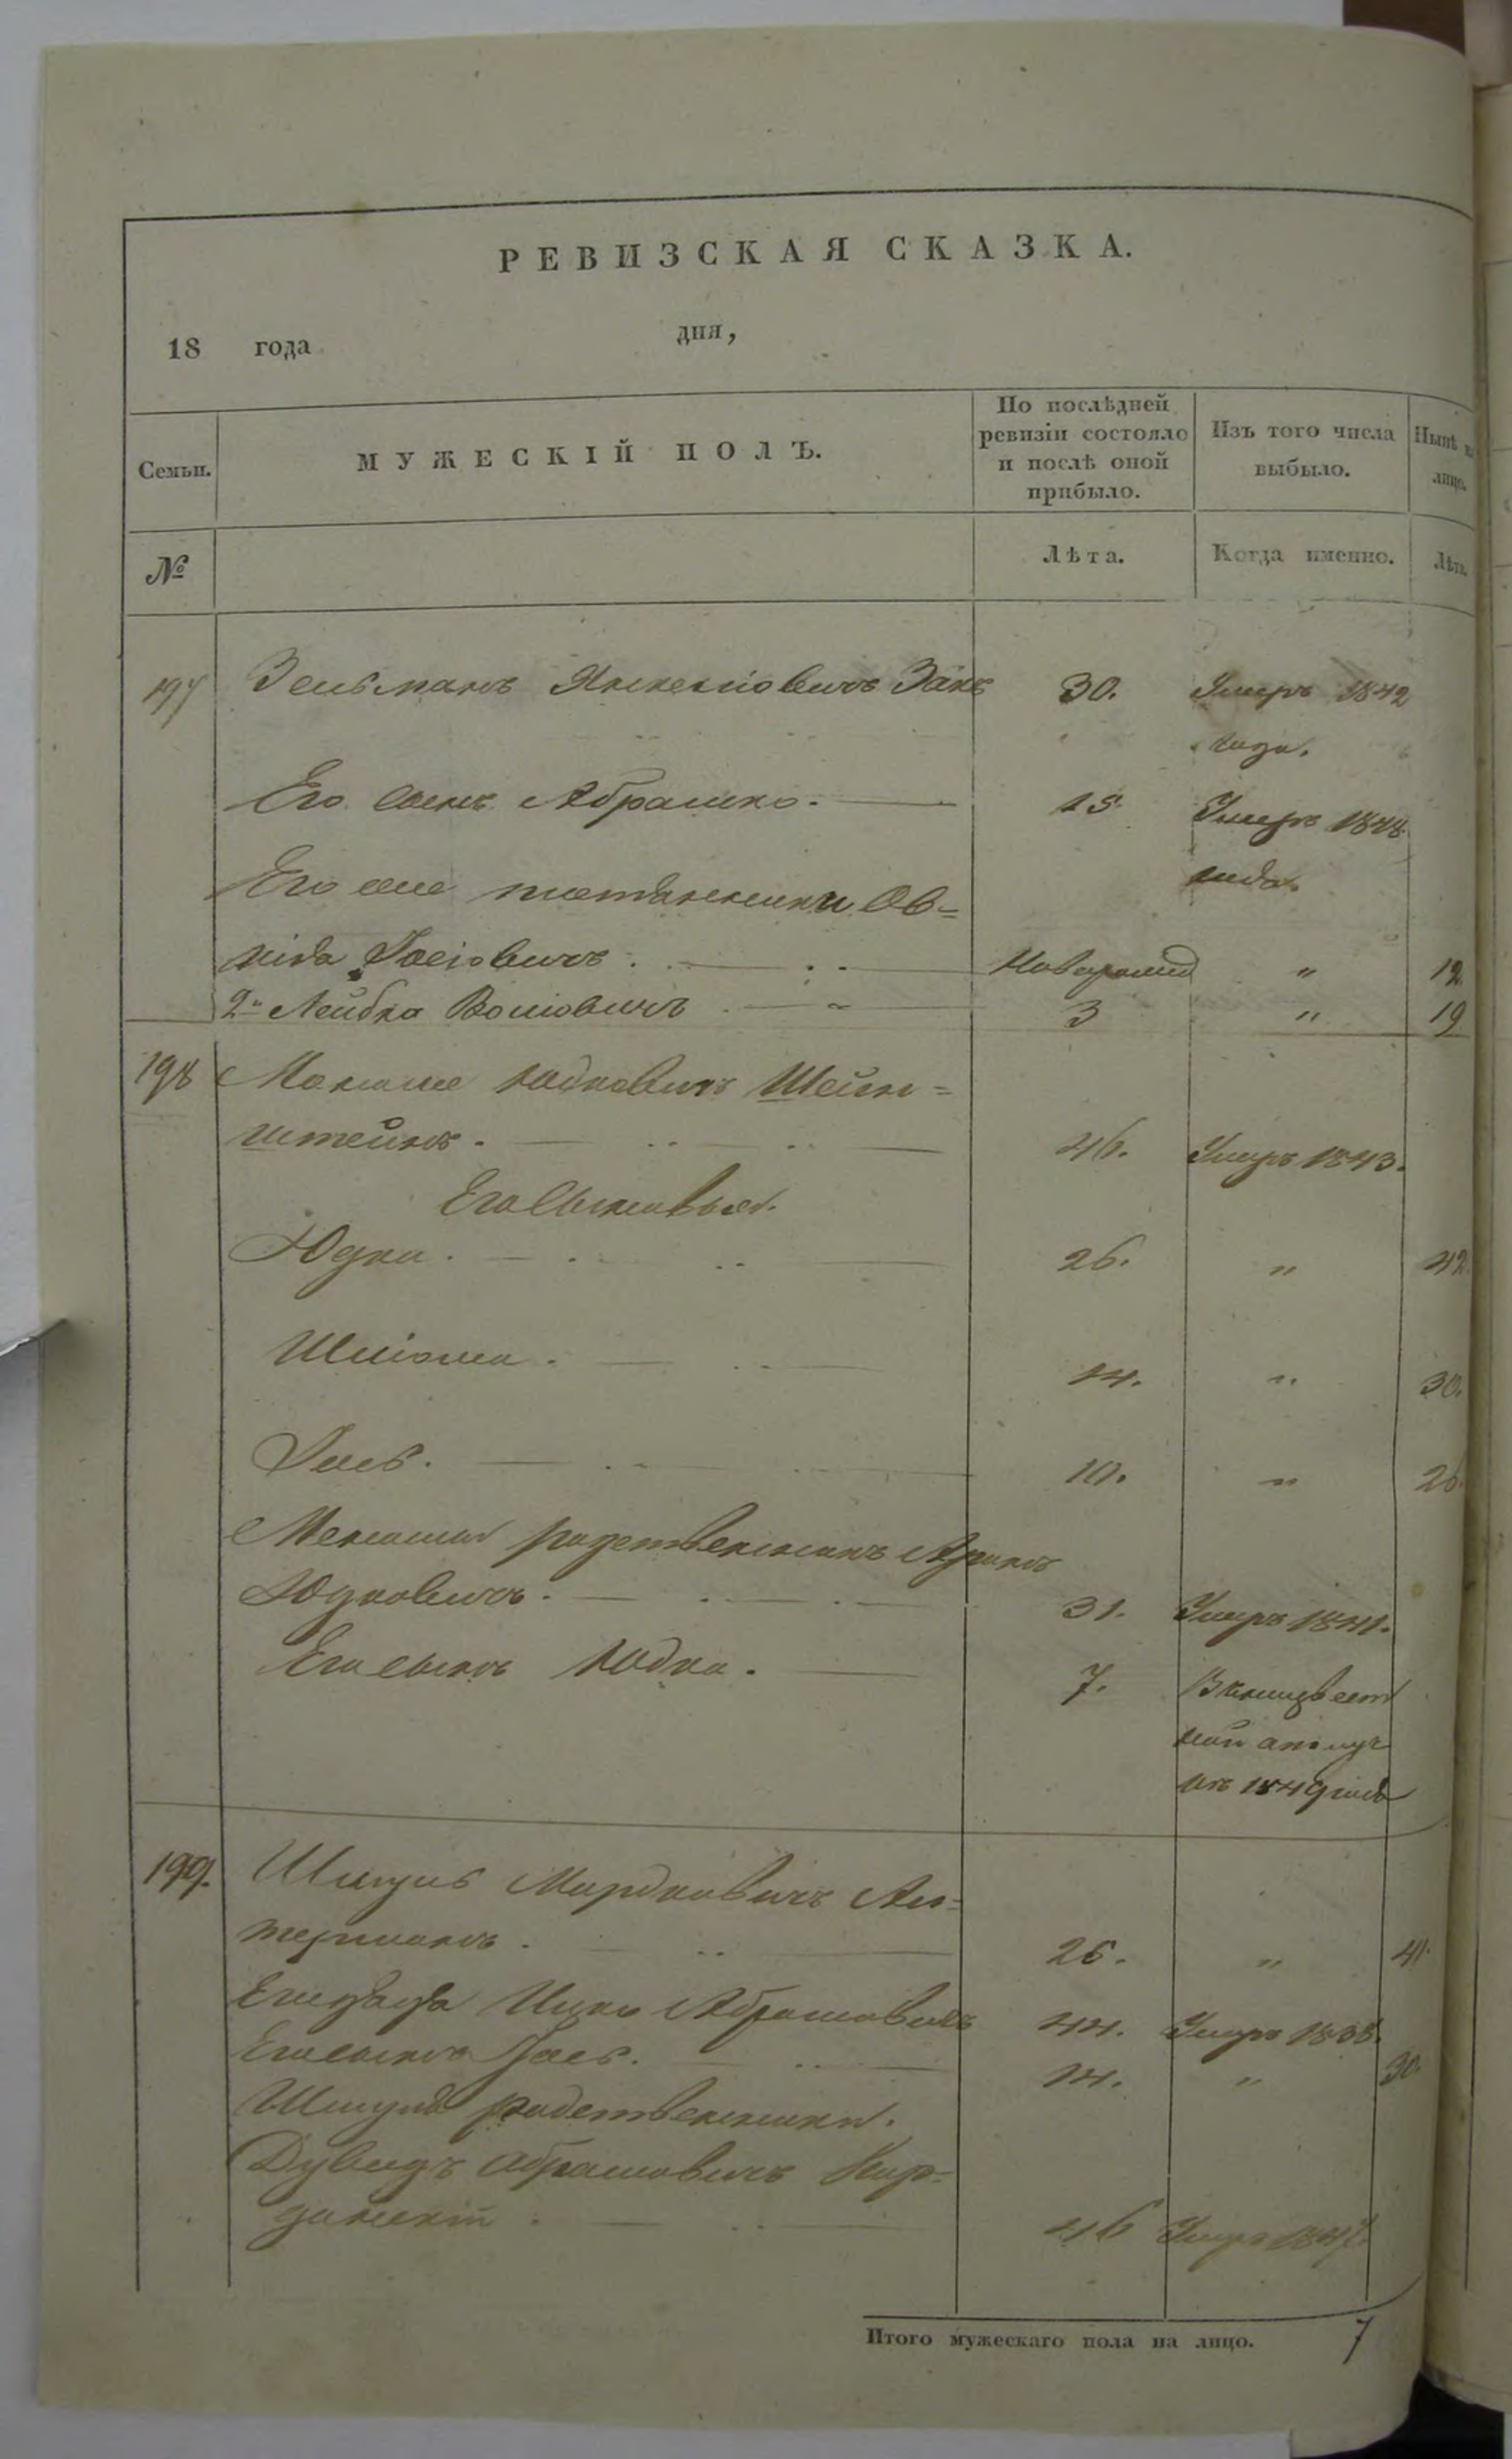 РЕВИЗСКАЯ СКАЗКА.
18 года дня,
Семьи. МУЖЕСКІЙ ПОЛЪ. По послѣдней ревизіи состояло и послѣ оной прибыло. Изъ того числа выбыло. Нынѣ на лицо.
№ Лѣта. Когда именно. Лѣта.
197 Зельманъ Янкелiовичъ Закъ 30. Умеръ 1842
года.
Его сынъ Абрашко. 15. Умеръ 1848.
года.
Его же племянники Ов=
Іосіовичъ. Новорожд " 12.
2й Лейбка 3 " 19
198 Юдковичъ Шейн=
штейнъ. 46. Умеръ 1843.
Его Сыновья.
Юдка. 26. " 42.
Шліома. 14. " 30.
Іось. 10. " 26.
родственникъ
Юдковичъ. 31. Умеръ 1841.
Его сынъ Юдка. 7. В неизвест
ной отлуч
къ 1849 года
199. Шмуль Мордковичъ Аль=
терманъ. 26. " 41.
Его дядя Ицко Абрамовичъ 44. Умеръ 1838.
Его сынъ Іось. 14. " 30.
Шмуля родственники.
Дувидъ Абрамовичъ
46 Умеръ
Итого мужескаго пола на лицо. 7